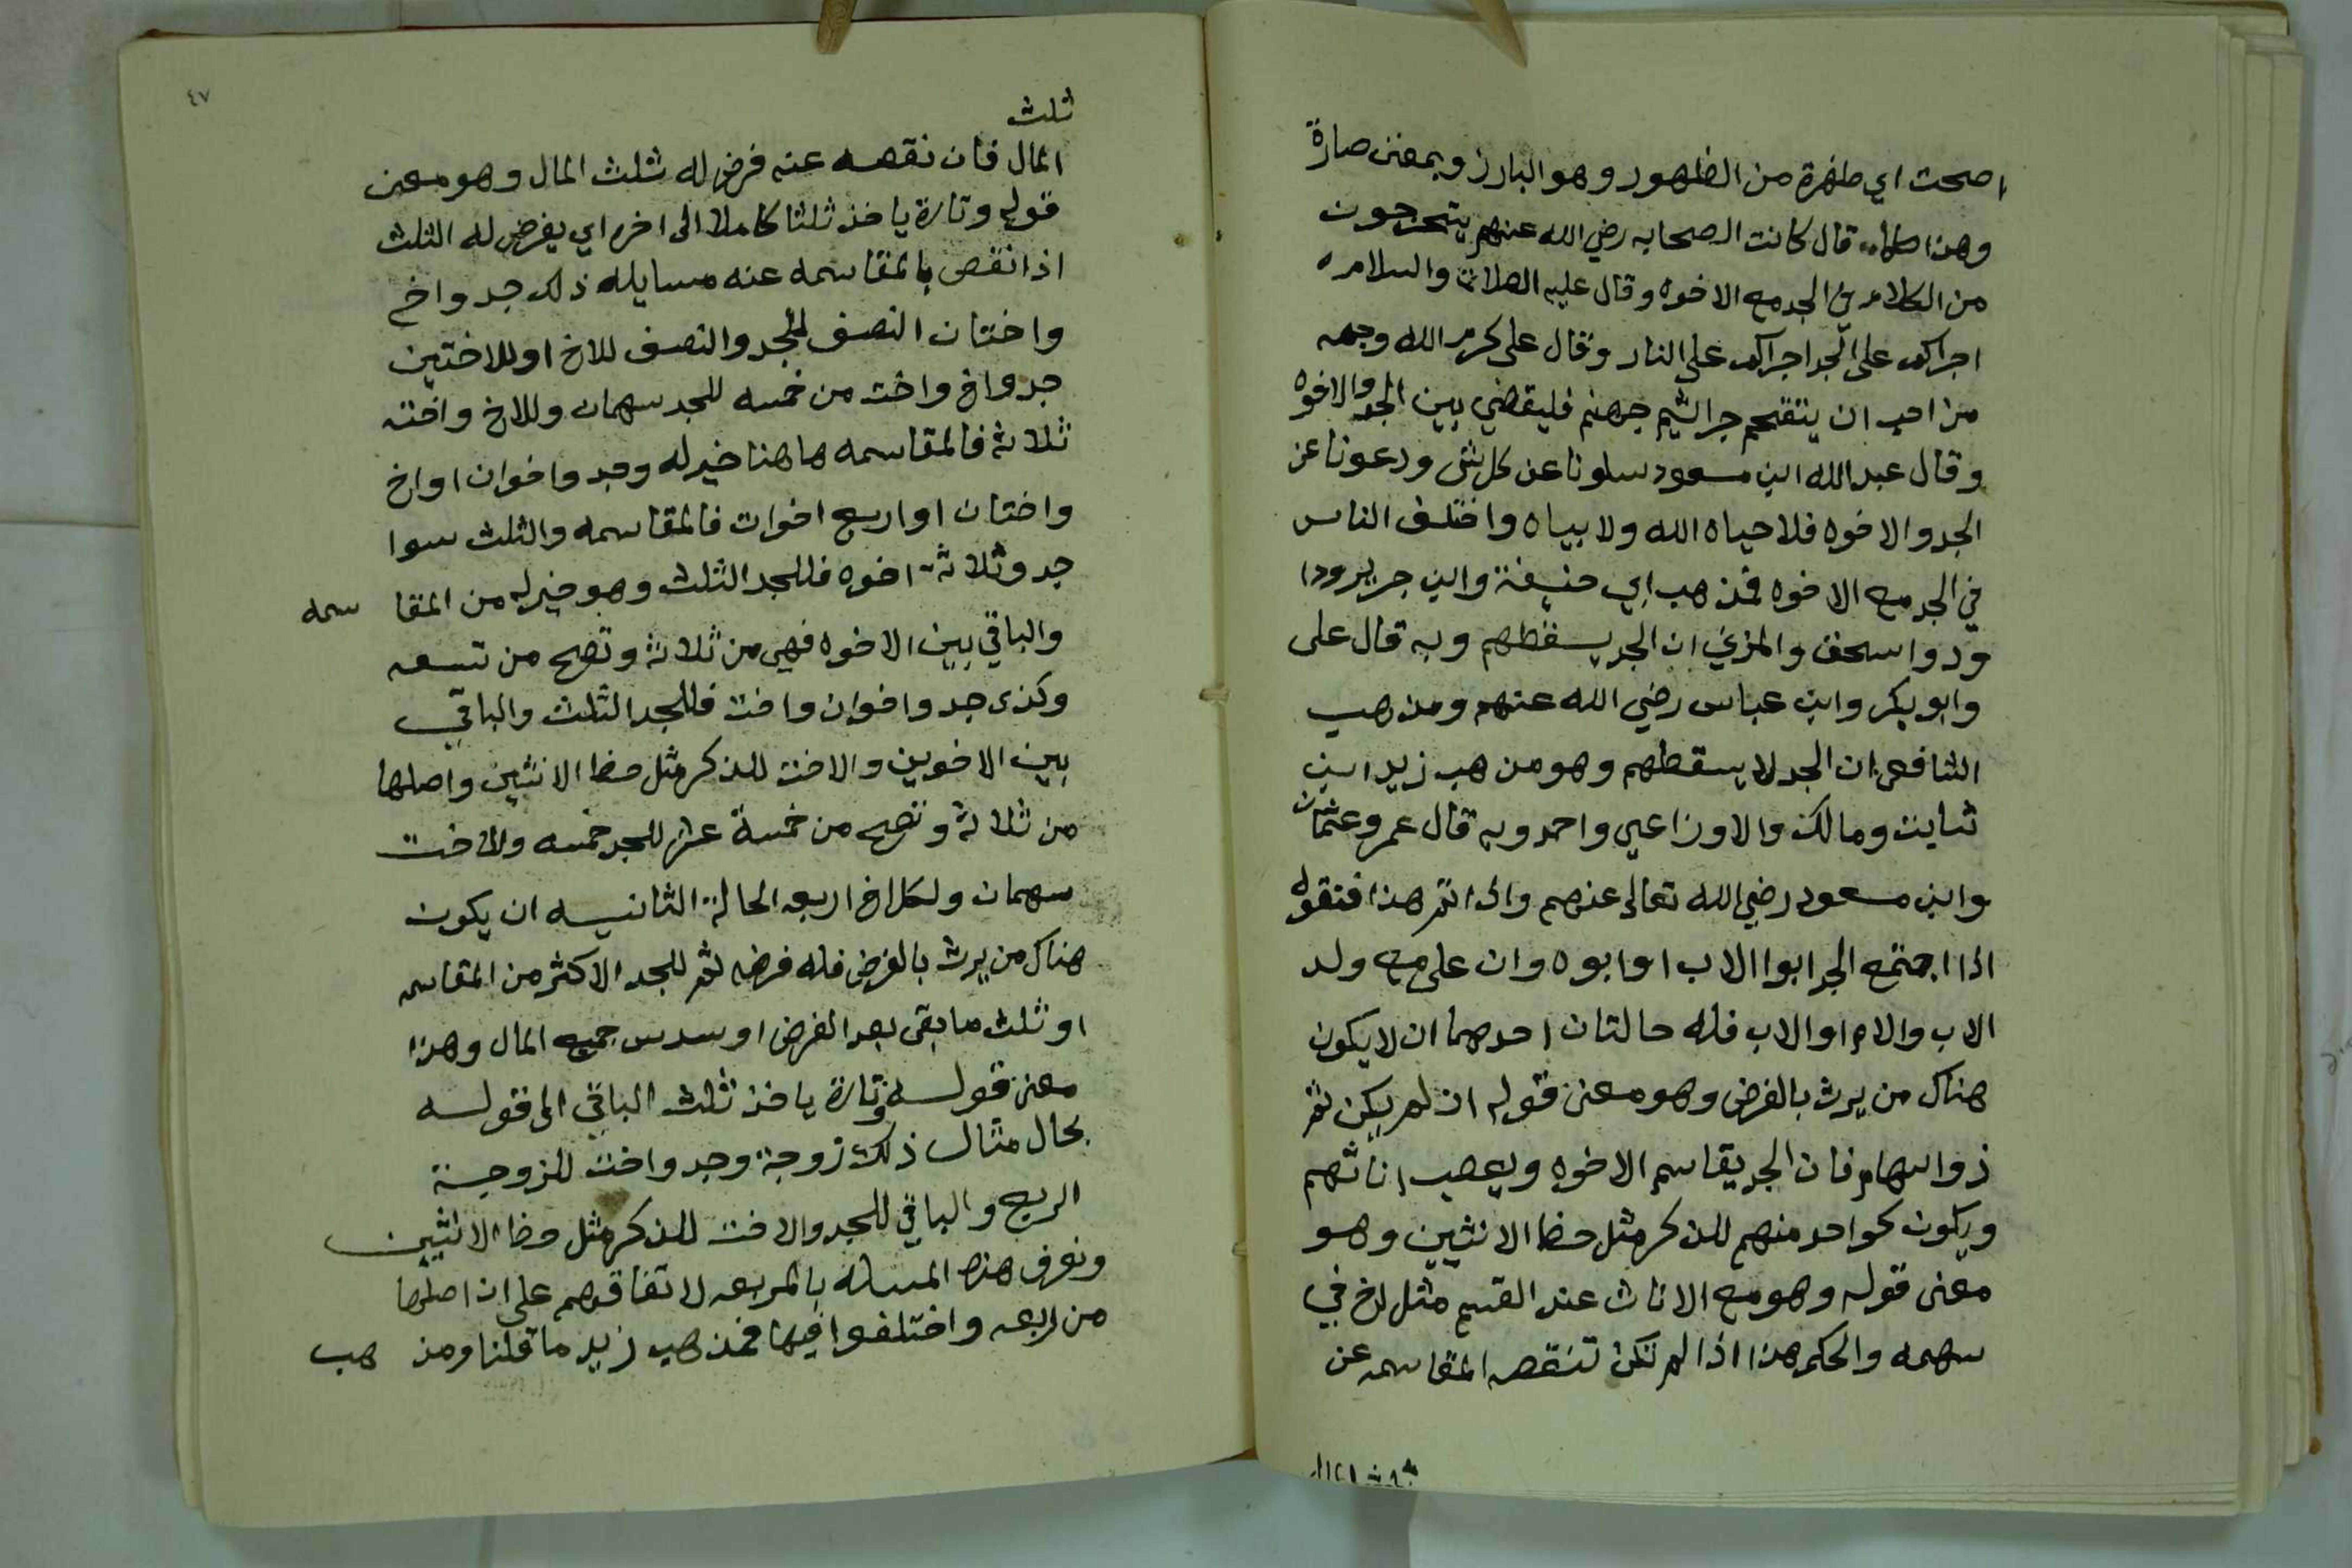 اصحت اي ظهرة من الظهور وهو البارز وبمعنى صارة
وهذا قال كانت الصحابه رضي الله عنهم يتحرجون
من الكلام في الجد مع الاخوه وقال عليه الصلاة والسلام
اجراكم على الجد اجراكم على النار وقال على كرم الله وجهه
من احب ان يتقحم جراثيم جهنم فليقضي بين الجد والاخوه
وقال عبد الله ابن مسعود سلونا عن كل شى ودعونا عن
الجد والاخوه فلا حياه الله ولا بياه واختلف الناس
في الجد مع الاخوه فمذهب ابي حنيفة وابن جرير ودا
ودو اسحق والمزني ان الجد يسقطهم وبه قال على
وابو بكر وابن عباس رضي الله عنهم ومذهب
الشافعى ان الجد لا يسقطهم وهو مذهب زيد ابن
ثابت ومالك والاوزاعي واحمد وبه قال عمر وعثمان
وابن مسعود رضي الله تعالى عنهم واذا تقرر هذا فنقوله
اذا اجتمع الجد ابوا الاب او ابوه وان على مع ولد
الاب والام او الاب فله حالتان احدهما ان لا يكون
هناك من يرث بالفرض وهو معنى قوله ان لم يكن ثم
ذوا سهام فان الجد يقاسم الاخوه ويعصب اناثهم
ويكون كواحد منهم للذكر مثل حظ الانثيين وهو
معنى قوله وهو مع الاناث عند القسم مثل اخ في
سهمه والحكم هذا اذا لم تكن تنقصه المقاسمه عن
ثلث المال
٤٧
ثلث
المال فان نقصه عنه فرض له ثلث المال وهو معنى
قوله وتارة ياخذ ثلثا كاملا الى اخره اي يفرض له الثلث
اذا نقص بالمقاسمه عنه مسايله ذلك جد واخ
واختان النصف للجد والنصف للاخ او للاختين
جد واخ واخت من خمسه للجد سهمان وللاخ واخته
ثلاثة فالمقاسمه هاهنا خير له وجد واخوان او اخ
واختان او اربع اخوات فالمقاسمه والثلث سوا
جد وثلاثة اخوه فللجد الثلث وهو خير له من المقا سمه
والباقي بين الاخوه فهي من ثلاثة وتصح من تسعه
وكذى جد واخوان واخت فللجد الثلث والباقي
بين الاخوين والاخت للذكر مثل حظ الانثيين واصلها
من ثلاثة وتصح من خمسة عشر للجد خمسه وللاخت
سهمان ولكل اخ اربعه الحالة الثانيه ان يكون
هناك من يرث بالفرض فله فرضه ثم للجد الاكثر من المقاسمه
او ثلث ما بقى بعد الفرض او سدس جميع المال وهذا
معنى قوله وتارة ياخذ ثلث الباقي الى قوله
بحال مثال ذلك زوجة وجد واخت للزوجة
الربع والباقي للجد والاخت للذكر مثل حظ الانثيين
وتعرف هذه المساله بالمربعه لاتفاقهم على ان اصلها
من اربعه واختلفوا فيها فمذهب زيد ما قلنا ومذ هب